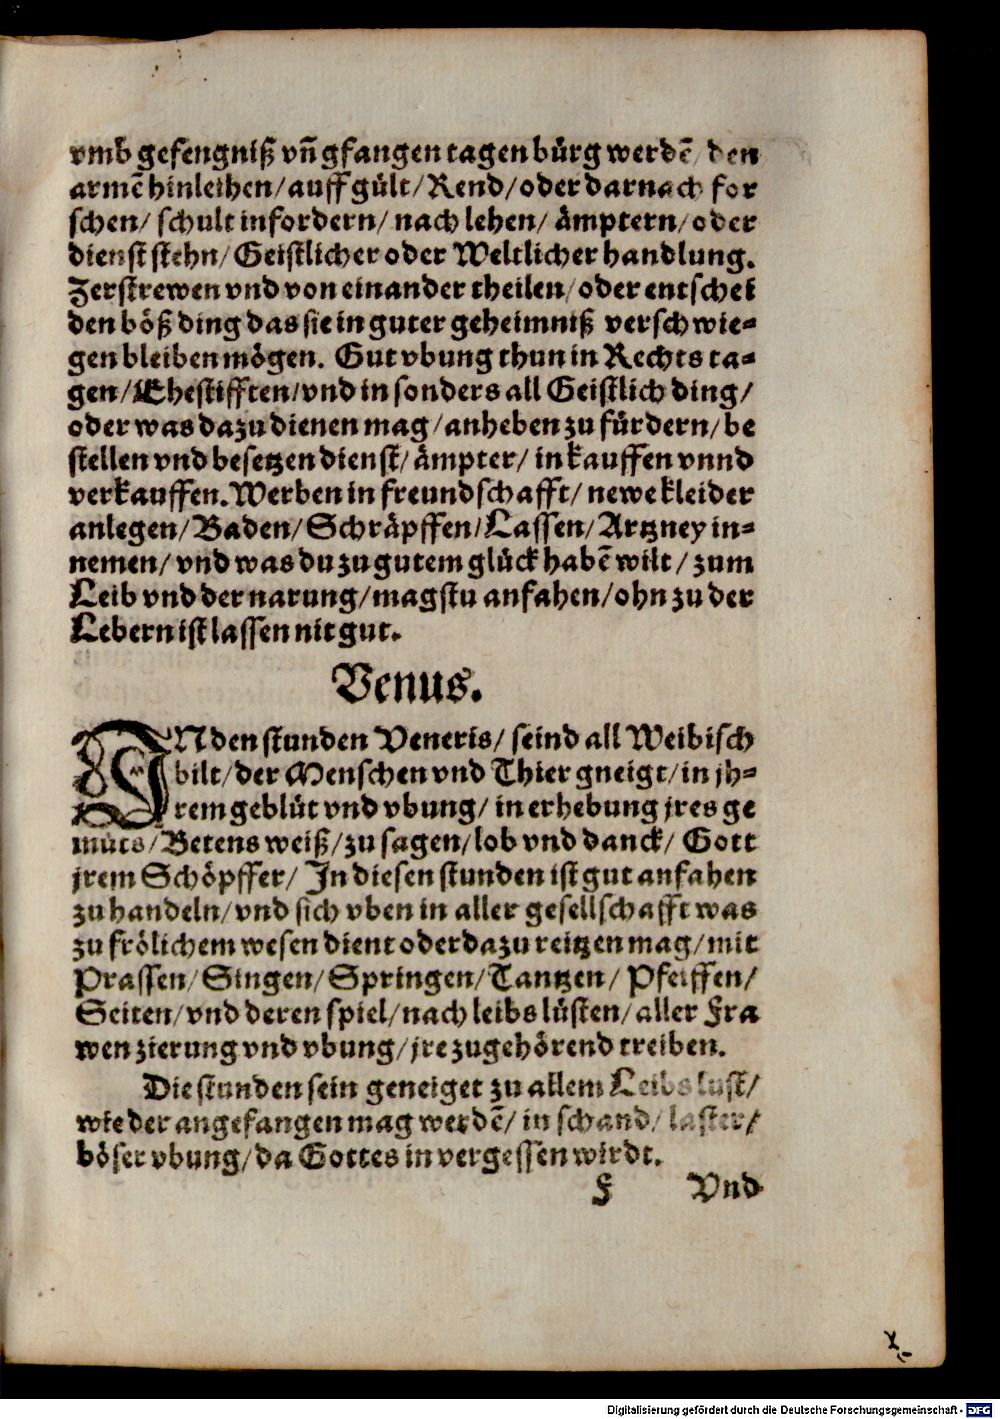 vmb gefengniß vñ gfangen tagen bürg werdē/ den
armē hinleihen/ auff gült/ Rend/ oder darnach for
schen/ schult infordern/ nach lehen/ ämptern/ oder
dienst stehn/ Geistlicher oder Weltlicher handlung.
Zerstrewen vnd von einander theilen/ oder entschei
den böß ding das sie in guter geheimniß verschwie⸗
gen bleiben mögen. Gut vbung thun in Rechts ta⸗
gen/ Ehestifften/ vnd in sonders all Geistlich ding/
oder was dazu dienen mag/ anheben zu fürdern/ be
stellen vnd besetzen dienst/ ämpter/ in kauffen vnnd
verkauffen. Werben in freundschafft/ newe kleider
anlegen/ Baden/ Schräpffen/ Lassen/ Artzney in⸗
nemen/ vnd was du zu gutem glück habē wilt/ zum
Leib vnd der narung/ magstu anfahen/ ohn zu der
Lebern ist lassen nit gut.
Venus.
IN den stunden Veneris/ seind all Weibisch
bilt/ der Menschen vnd Thier gneigt/ in jh⸗
rem geblüt vnd vbung/ in erhebung jres ge
müts/ Betens weiß/ zu sagen/ lob vnd danck/ Gott
jrem Schöpffer/ In diesen stunden ist gut anfahen
zu handeln/ vnd sich vben in aller gesellschafft was
zu frölichem wesen dient oder dazu reitzen mag/ mit
Prassen/ Singen/ Springen/ Tantzen/ Pfeiffen/
Seiten/ vnd deren spiel/ nach leibs lüsten/ aller Fra
wen zierung vnd vbung/ jre zugehörend treiben.
Die stunden sein geneiget zu allem Leibs lust/
wie der angefangen mag werdē/ in schand/ laster/
böser vbung/ da Gottes in vergessen wirdt.
F Vnd
Digitalisierung gefördert durch die Deutsche Forschungsgemeinschaft - DFG